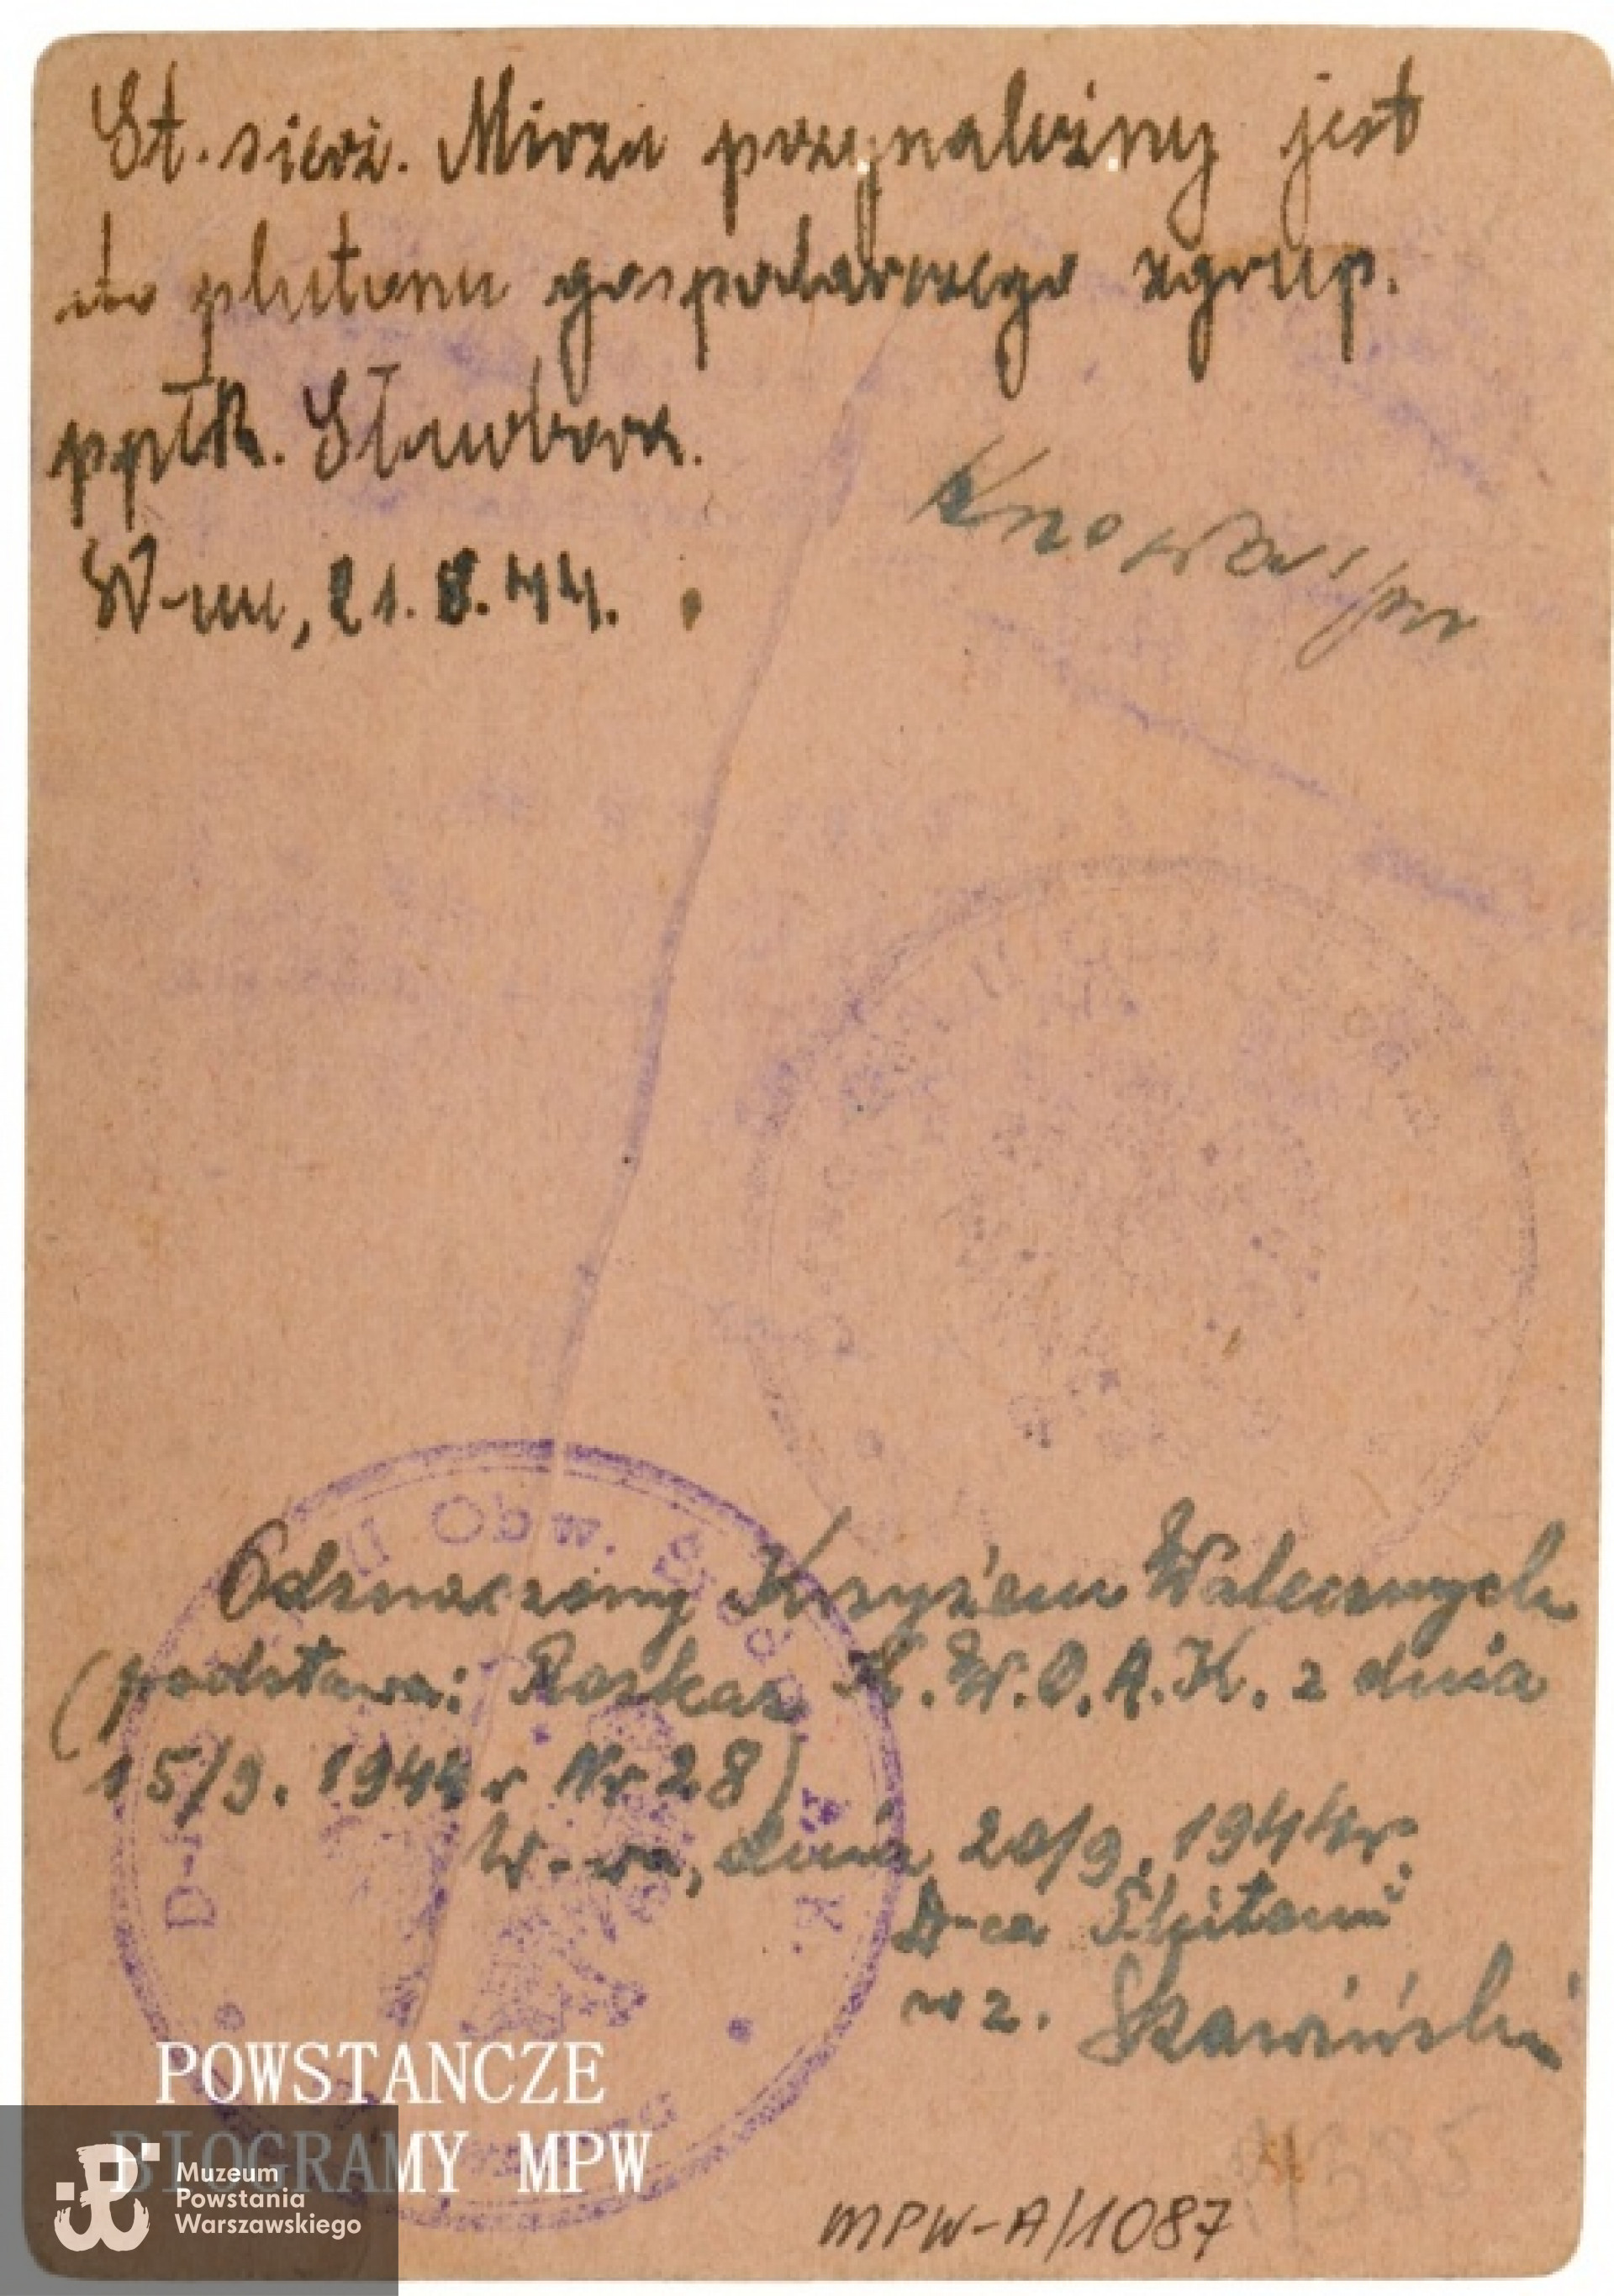 St. sierż. Mirza przynależny jest
do plutonu gospodarczego zgrup.
ppłk. Sławbora.
W-wa, 21.8.44.
Odznaczony Krzyżem Walecznych
(podstawa: Rozkaz K.W.O.A.K. z dnia
15/9. 1944 r Nr 28)
W-wa, dnia 20/9. 1944 r.
D-ca
w z. Skawiński
II Obw.
D-
K.
POWSTANCZE
BIOGRAMY MPW
Muzeum
Powstania
Warszawskiego
MPW-A/1087